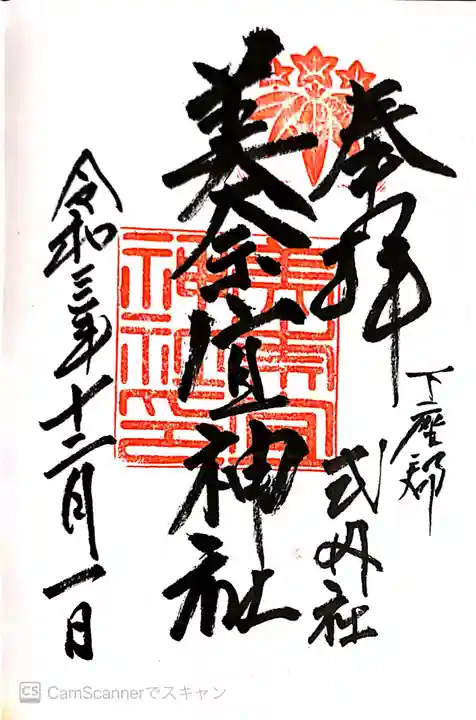 奉拝
下座郡
式内社
美奈宜神社
美奈宜
神社印
令和三年十二月一日
CS CamScannerでスキャン